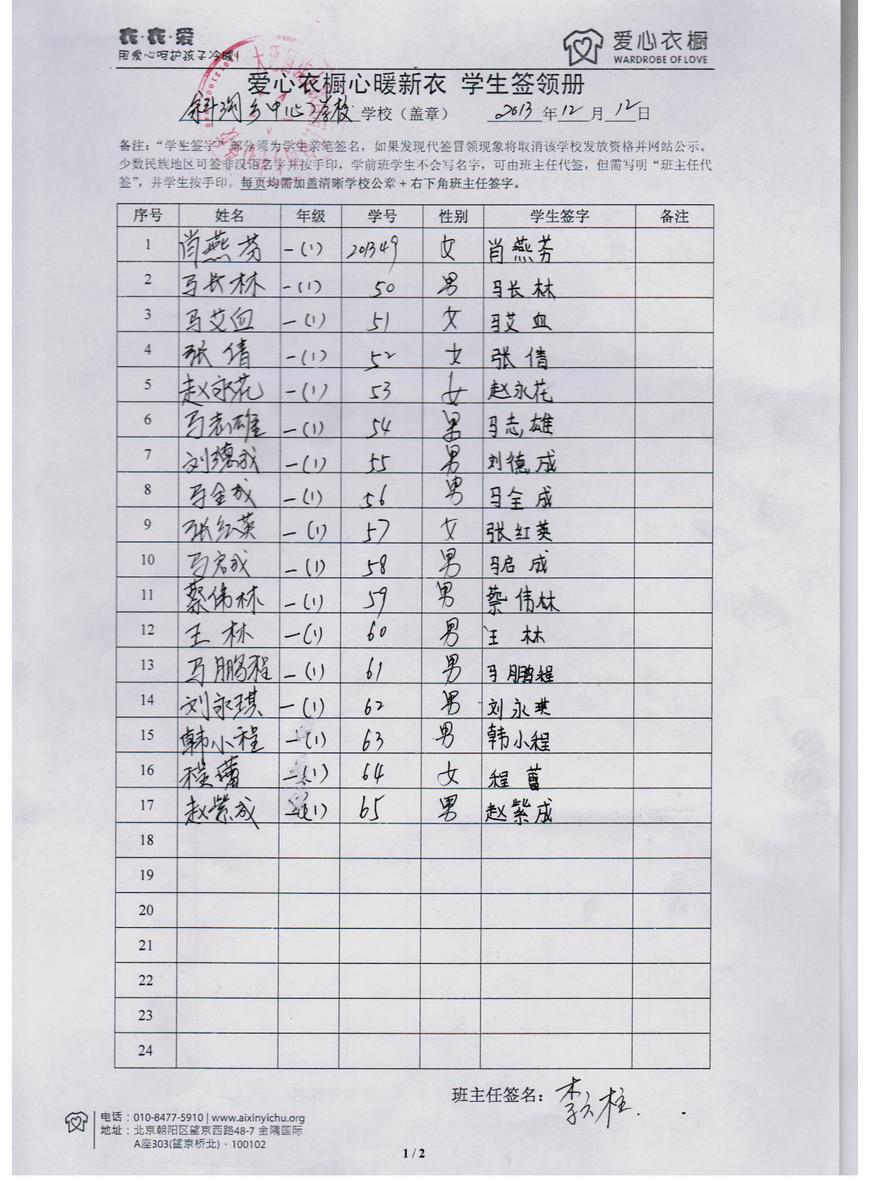 衣·衣·爱
用爱心呵护孩子冷暖
爱心衣橱
WARDROBE OF LOVE
爱心衣橱心暖新衣 学生签领册
斜沟乡中心学校 学校（盖章） 2013 年 12 月 12 日
备注：“学生签字”部分须为学生亲笔签名，如果发现代签冒领现象将取消该学校发放资格并网站公示。
少数民族地区可签非汉语名字并按手印，学前班学生不会写名字，可由班主任代签，但需写明“班主任代
签”，并学生按手印。每页均需加盖清晰学校公章+右下角班主任签字。
序号 姓名 年级 学号 性别 学生签字 备注
1 肖燕芬 一(1) 201349 女 肖燕芬
2 马长林 一(1) 50 男 马长林
3 马艾血 一(1) 51 女 马艾血
4 张倩 一(1) 52 女 张倩
5 赵永花 一(1) 53 女 赵永花
6 马志雄 一(1) 54 男 马志雄
7 刘德成 一(1) 55 男 刘德成
8 马全成 一(1) 56 男 马全成
9 张红英 一(1) 57 女 张红英
10 马启成 一(1) 58 男 马启成
11 蔡伟林 一(1) 59 男 蔡伟林
12 王林 一(1) 60 男 王林
13 马鹏程 一(1) 61 男 马鹏程
14 刘永琪 一(1) 62 男 刘永琪
15 韩小程 一(1) 63 男 韩小程
16 程蕾 一(1) 64 女 程蕾
17 赵紫成 一(1) 65 男 赵紫成
18
19
20
21
22
23
24
班主任签名：
电话：010-8477-5910 | www.aixinyichu.org
地址：北京朝阳区望京西路48-7 金隅国际
A座303(望京桥北)·100102
1 / 2